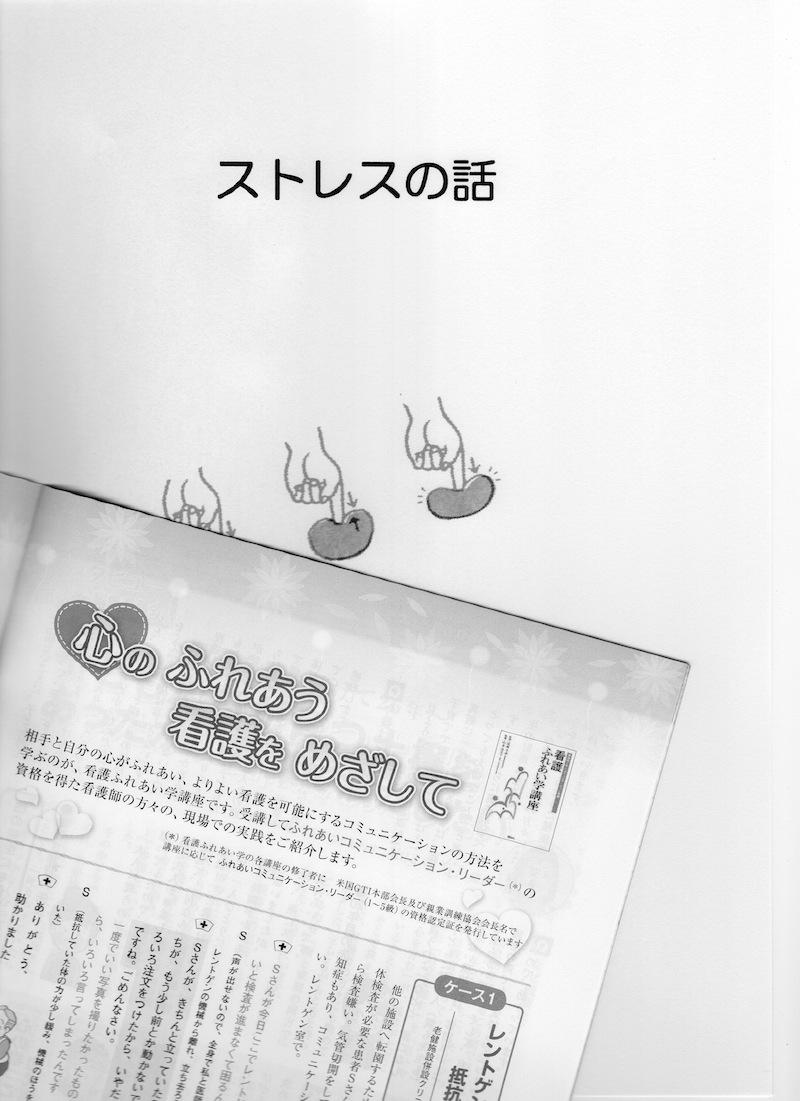 ストレスの話
心の ふれあう
看護を めざして
看護
ふれあい学講座
相手と自分の心がふれあい、よりよい看護を可能にするコミュニケーションの方法を
学ぶのが、看護ふれあい学講座です。受講してふれあいコミュニケーション・リーダー(*)の
資格を得た看護師の方々の、現場での実践をご紹介します。
(*)看護ふれあい学の各講座の修了者に 米国GTI本部会長及び親業訓練協会会長名で
講座に応じて ふれあいコミュニケーション・リーダー(1〜5級)の資格認定証を発行しています
ケース1
レントゲン
抵抗
老健施設併設クリ
他の施設へ転園するため
体検査が必要な患者Sさん
ら検査嫌い。気管切開をして
知症もあり、コミュニケーシ
い。レントゲン室で。
Sさんが今日ここでレント
いと検査が進まなくて困るん
S (声が出せないので、全身で私と医師
レントゲンの機械から離れ、立ち去ろ
Sさんが、きちんと立っていた
ちが、もう少し前とか動かないで
ろいろ注文をつけたから、いやだ
ですね。ごめんなさい。
一度でいい写真を撮りたかったもの
ら、いろいろ言ってしまったんです
S (抵抗していた体の力が少し緩み、機械のほうを
いた)
ありがとう、
助かりました